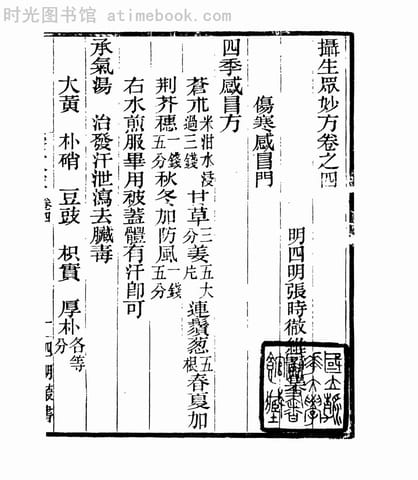 时光图书馆 - atimebook.com
攝生眾妙方卷之四
明四明張時徹維
傷寒感冒門
四季感冒方
蒼朮米泔水浸過三錢甘草三分姜五大片連鬚葱五根春夏加
荊芥穗一錢五分秋冬加防風一錢五分
右水煎服畢用被蓋體有汗卽可
承氣湯 治發汗泄瀉去臟毒
大黄 朴硝 豆豉 枳實 厚朴各等分
卷四 一 四明叢書